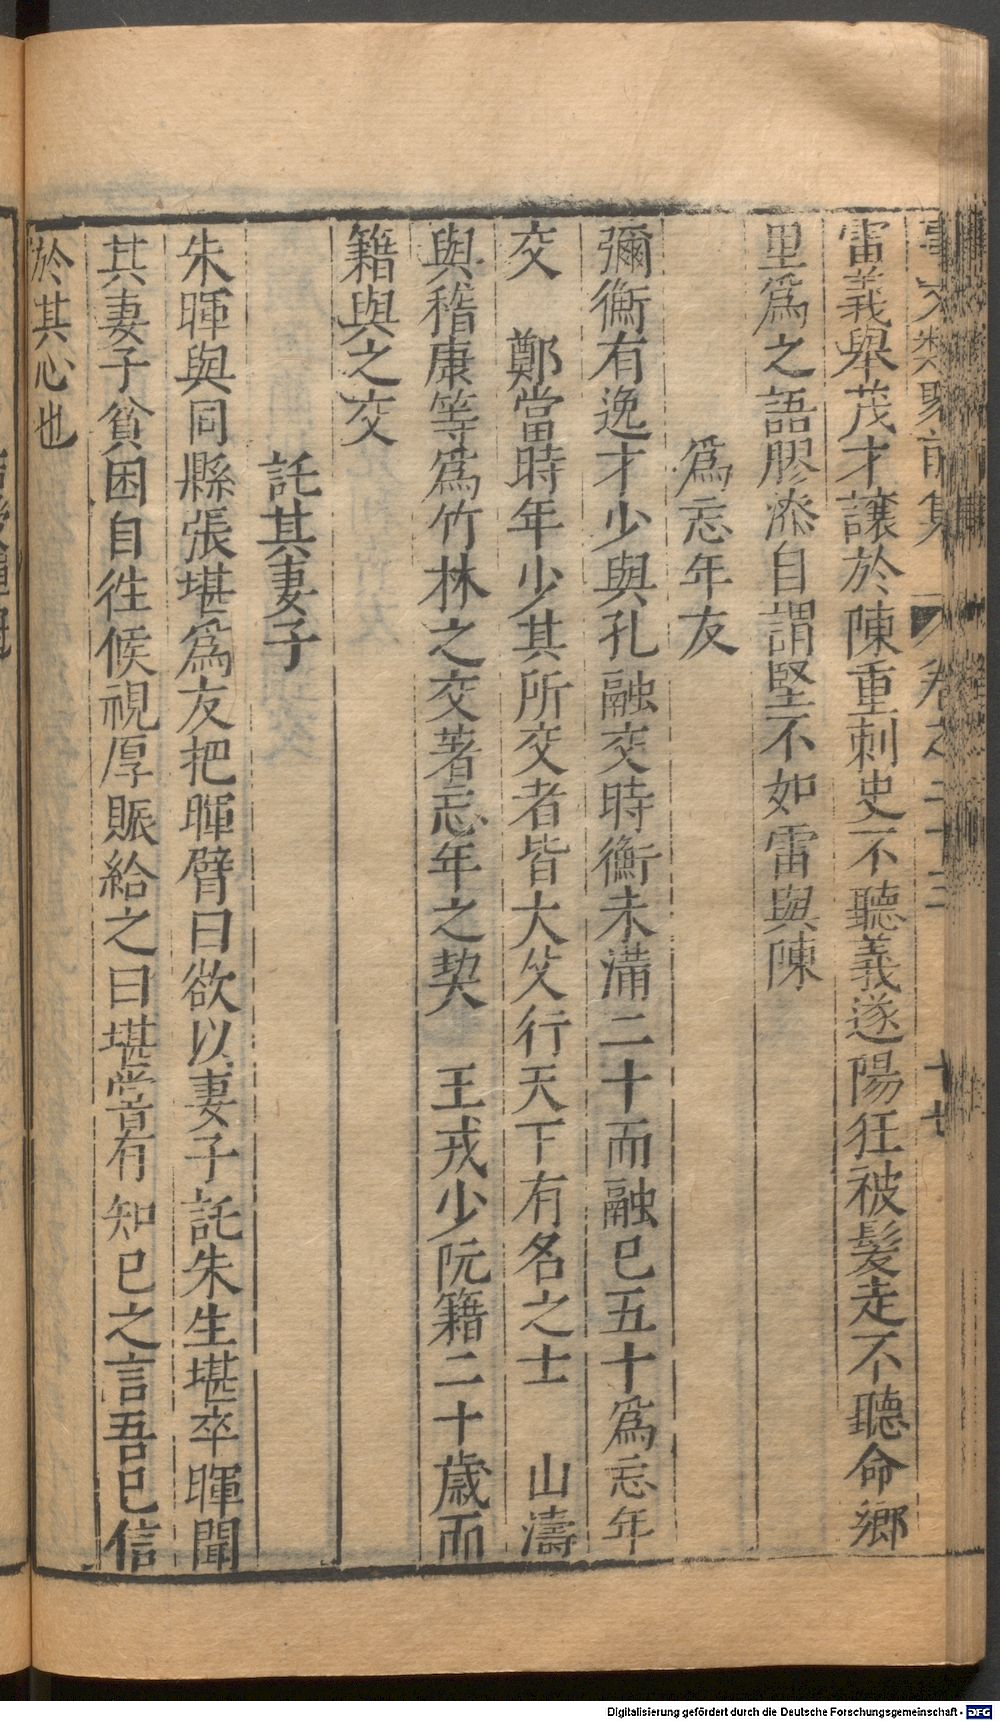 事文類聚前集 卷之二十三 十七
雷義舉茂才讓於陳重刺史不聽義遂陽狂被髮走不聽命鄉
里爲之語膠漆自謂堅不如雷與陳
爲忘年友
彌衡有逸才少與孔融交時衡未滿二十而融已五十爲忘年
交 鄭當時年少其所交者皆大父行天下有名之士 山濤
與嵇康等爲竹林之交著忘年之契 王戎少阮籍二十歲而
籍與之交
託其妻子
朱暉與同縣張堪爲友把暉臂曰欲以妻子託朱生堪卒暉聞
其妻子貧困自往候視厚賑給之曰堪甞有知已之言吾已信
於其心也
Digitalisierung gefördert durch die Deutsche Forschungsgemeinschaft - DFG